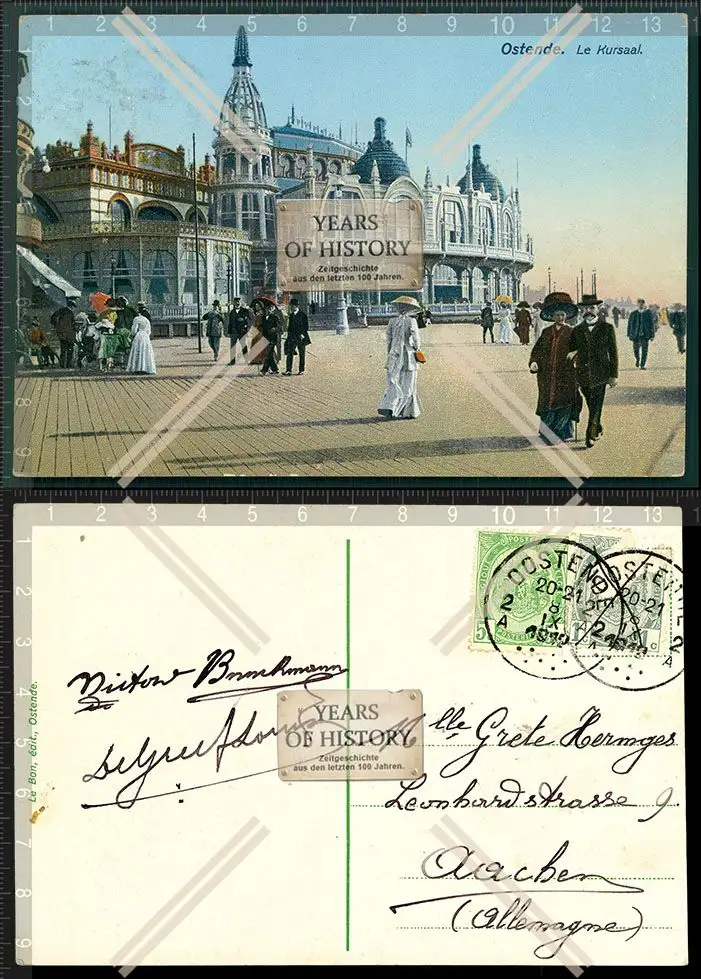 1 2 3 4 5 6 7 8 9 10 11 12 13
Ostende. Le Kursaal.
YEARS
OF HISTORY
Zeitgeschichte
aus den letzten 100 Jahren.
8
9
1 2 3 4 5 6 7 8 9 10 11 12 13
1
2
3
4
5
6
7
8
9
OOSTENDE
20-21
8
IX
2
A
OOSTENDE
20-21
IX
2
A
5
Victor Brinckmann
Le Bon, édit., Ostende.
YEARS
OF HISTORY
Zeitgeschichte
aus den letzten 100 Jahren.
Mlle Grete Hermges
Leonhardstrasse 9
Aachen
(Allemagne)